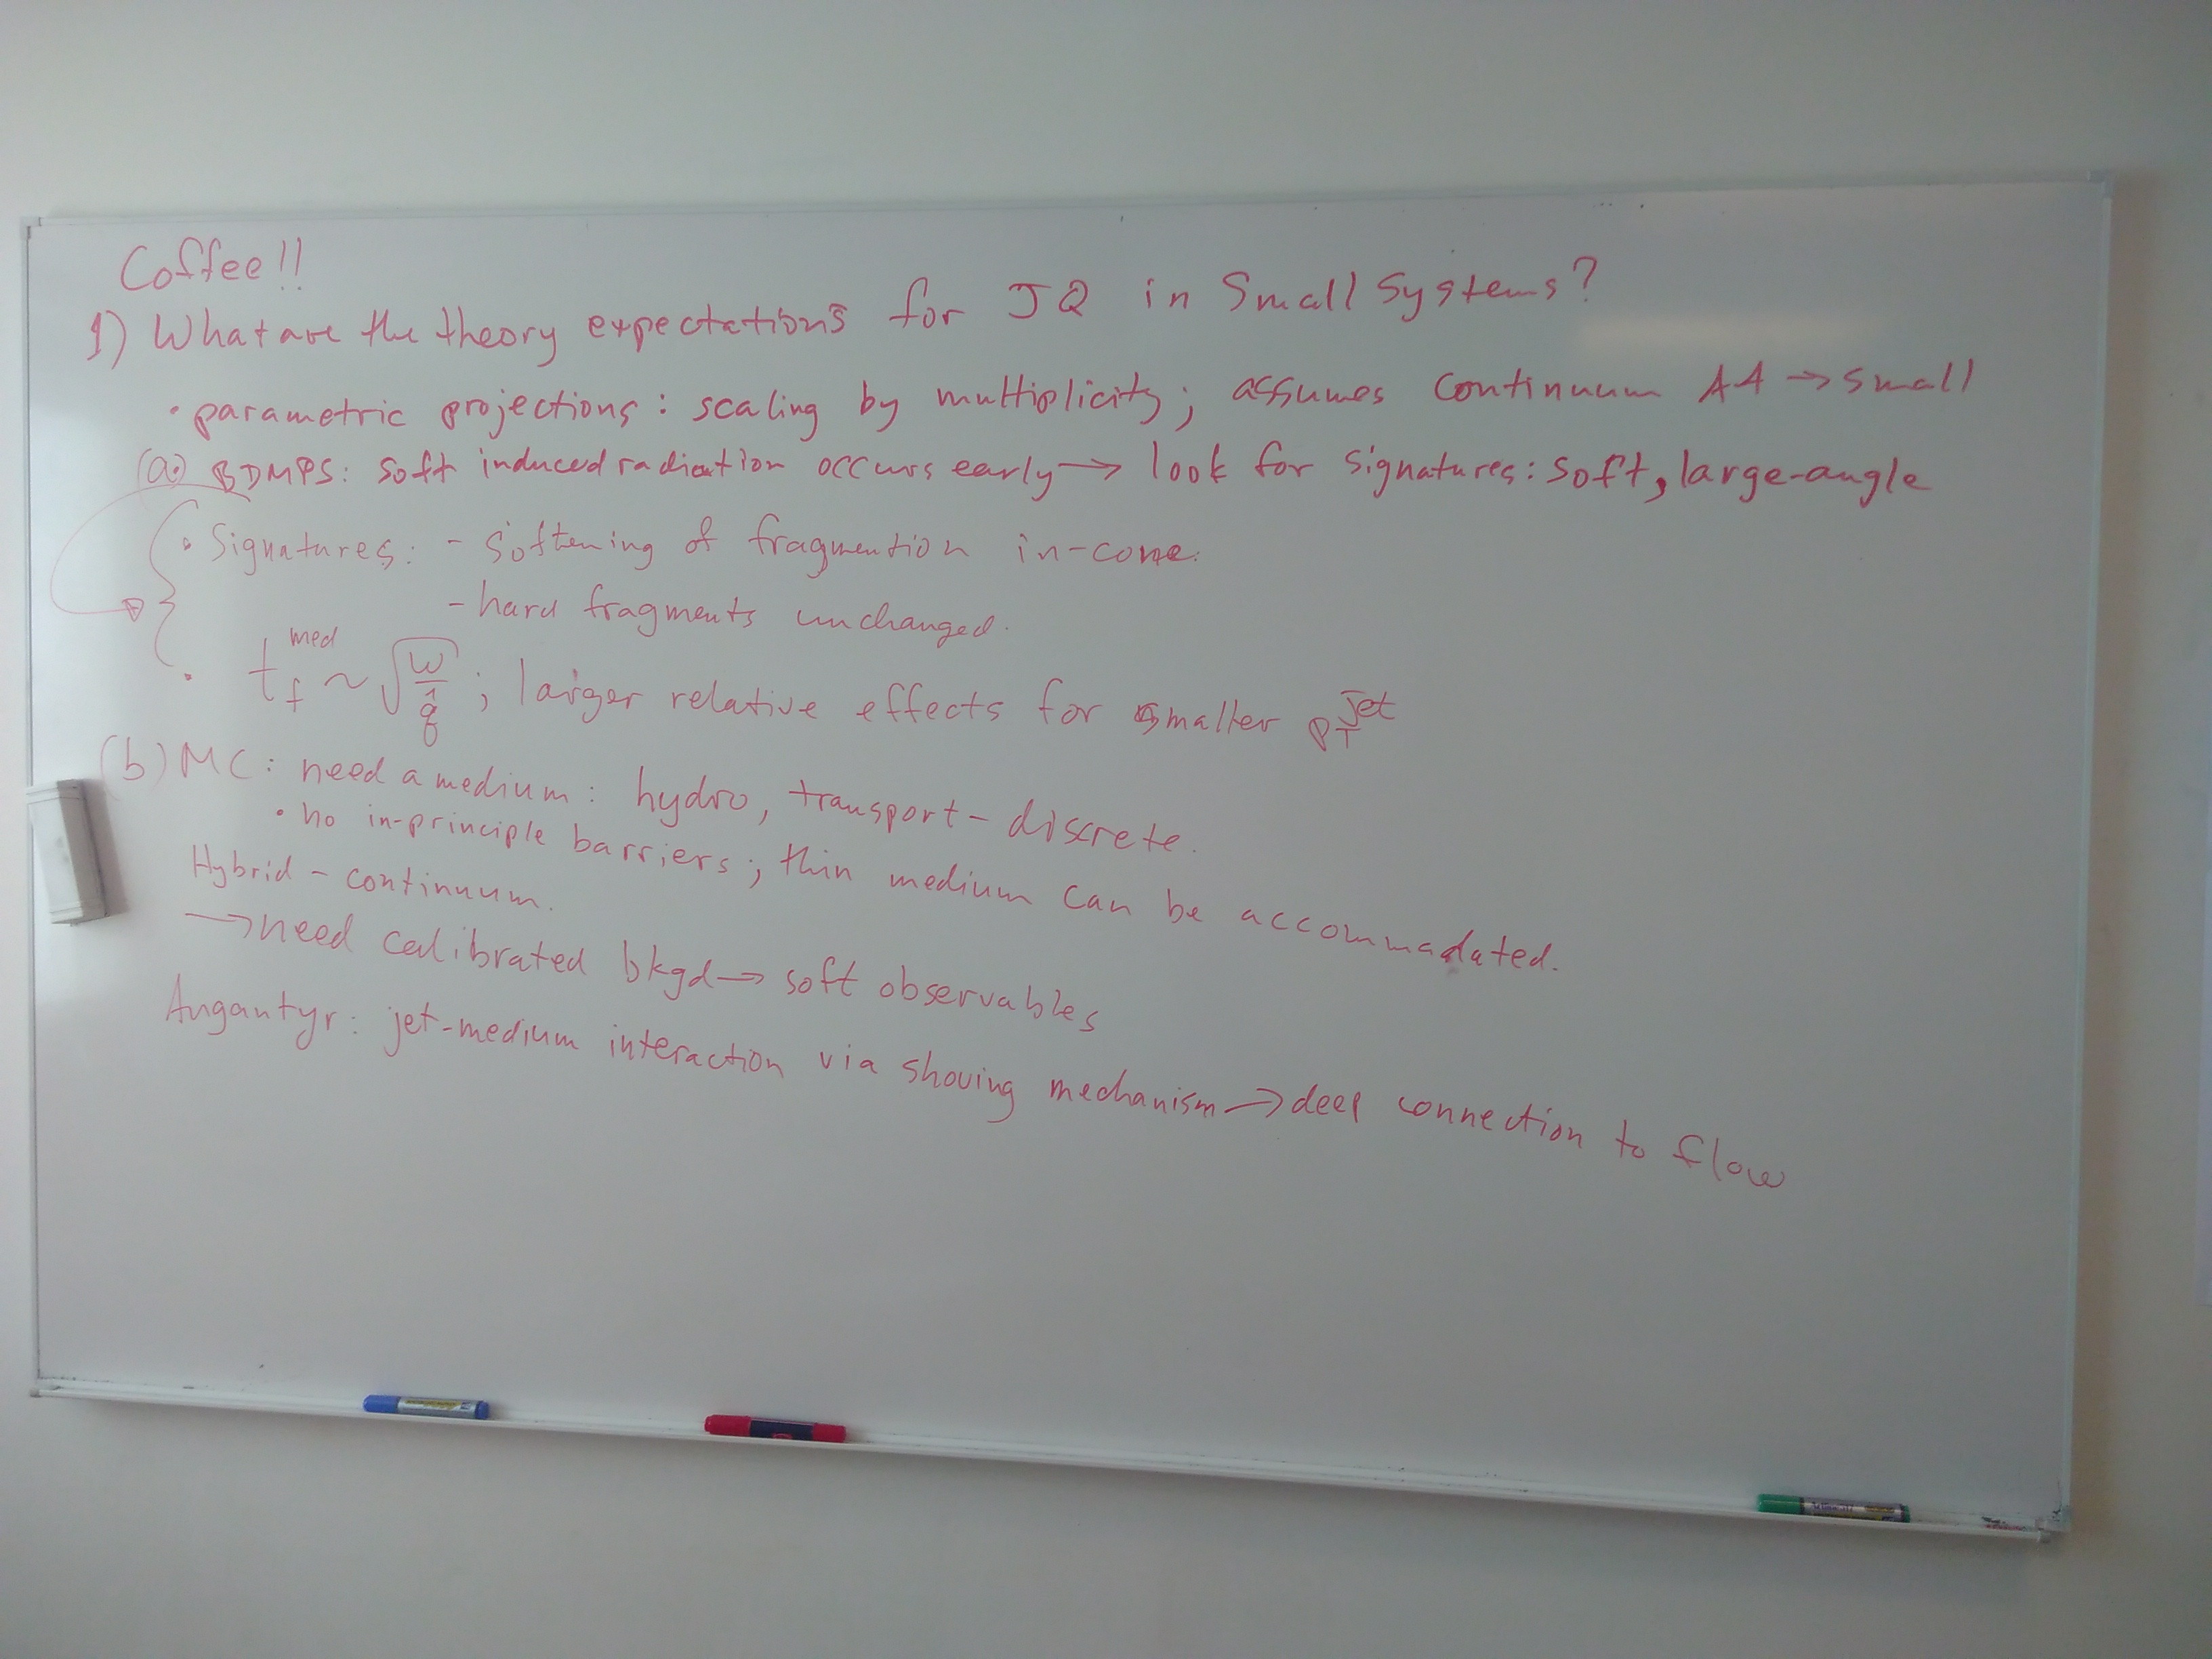 Coffee!!
1) What are the theory expectations for JQ in Small Systems?
• parametric projections: scaling by multiplicity; assumes continuum AA → small
(a) BDMPS: soft induced radiation occurs early → look for signatures: soft, large-angle
• Signatures: - Softening of fragmention in-cone.
- hard fragments unchanged.
• t_f^med ~ √(ω/q̂) ; larger relative effects for smaller p_T^jet
(b) MC: need a medium: hydro, transport - discrete.
• no in-principle barriers; thin medium can be accommadated.
Hybrid - continuum.
→ need calibrated bkgd → soft observables
Angantyr: jet-medium interaction via shoving mechanism → deep connection to flow